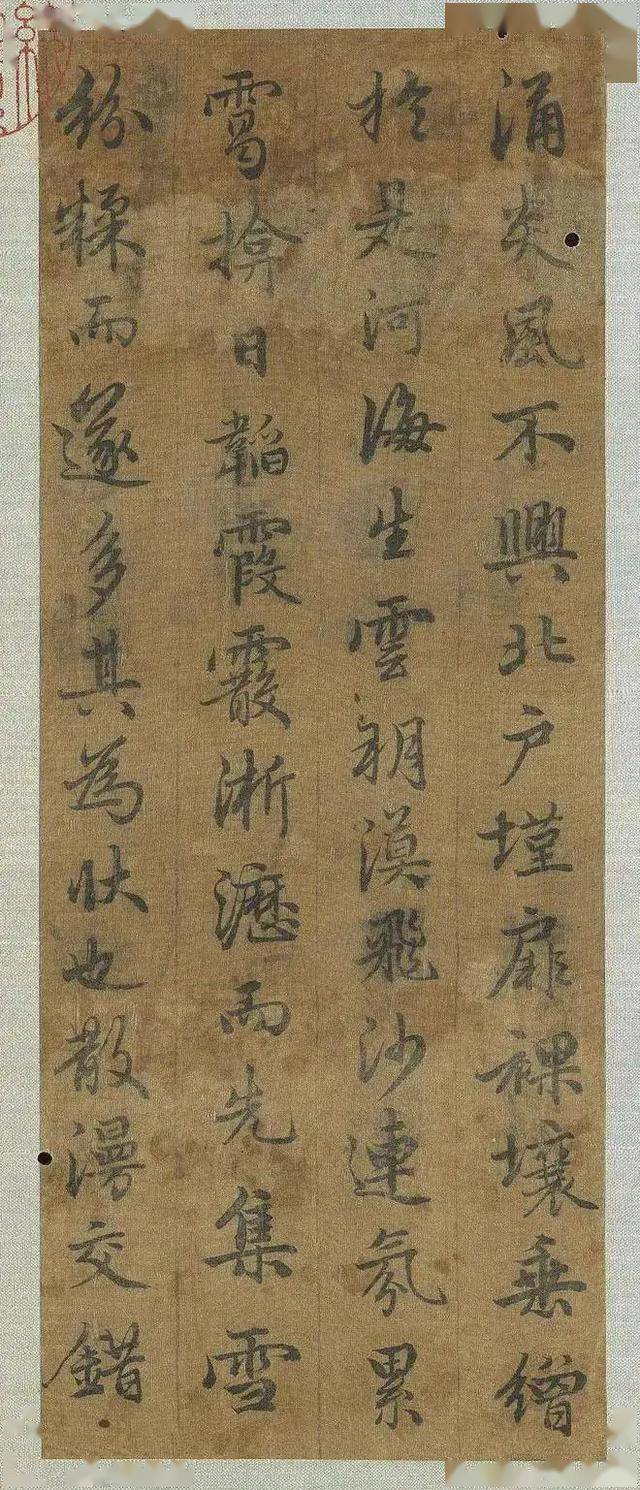 涌炎風不興北户墐扉裸壤垂繒
於是河海生雲朔漠飛沙連氛累
靄揜日韜霞霰淅瀝而先集雪
紛糅而遂多其為狀也散漫交錯